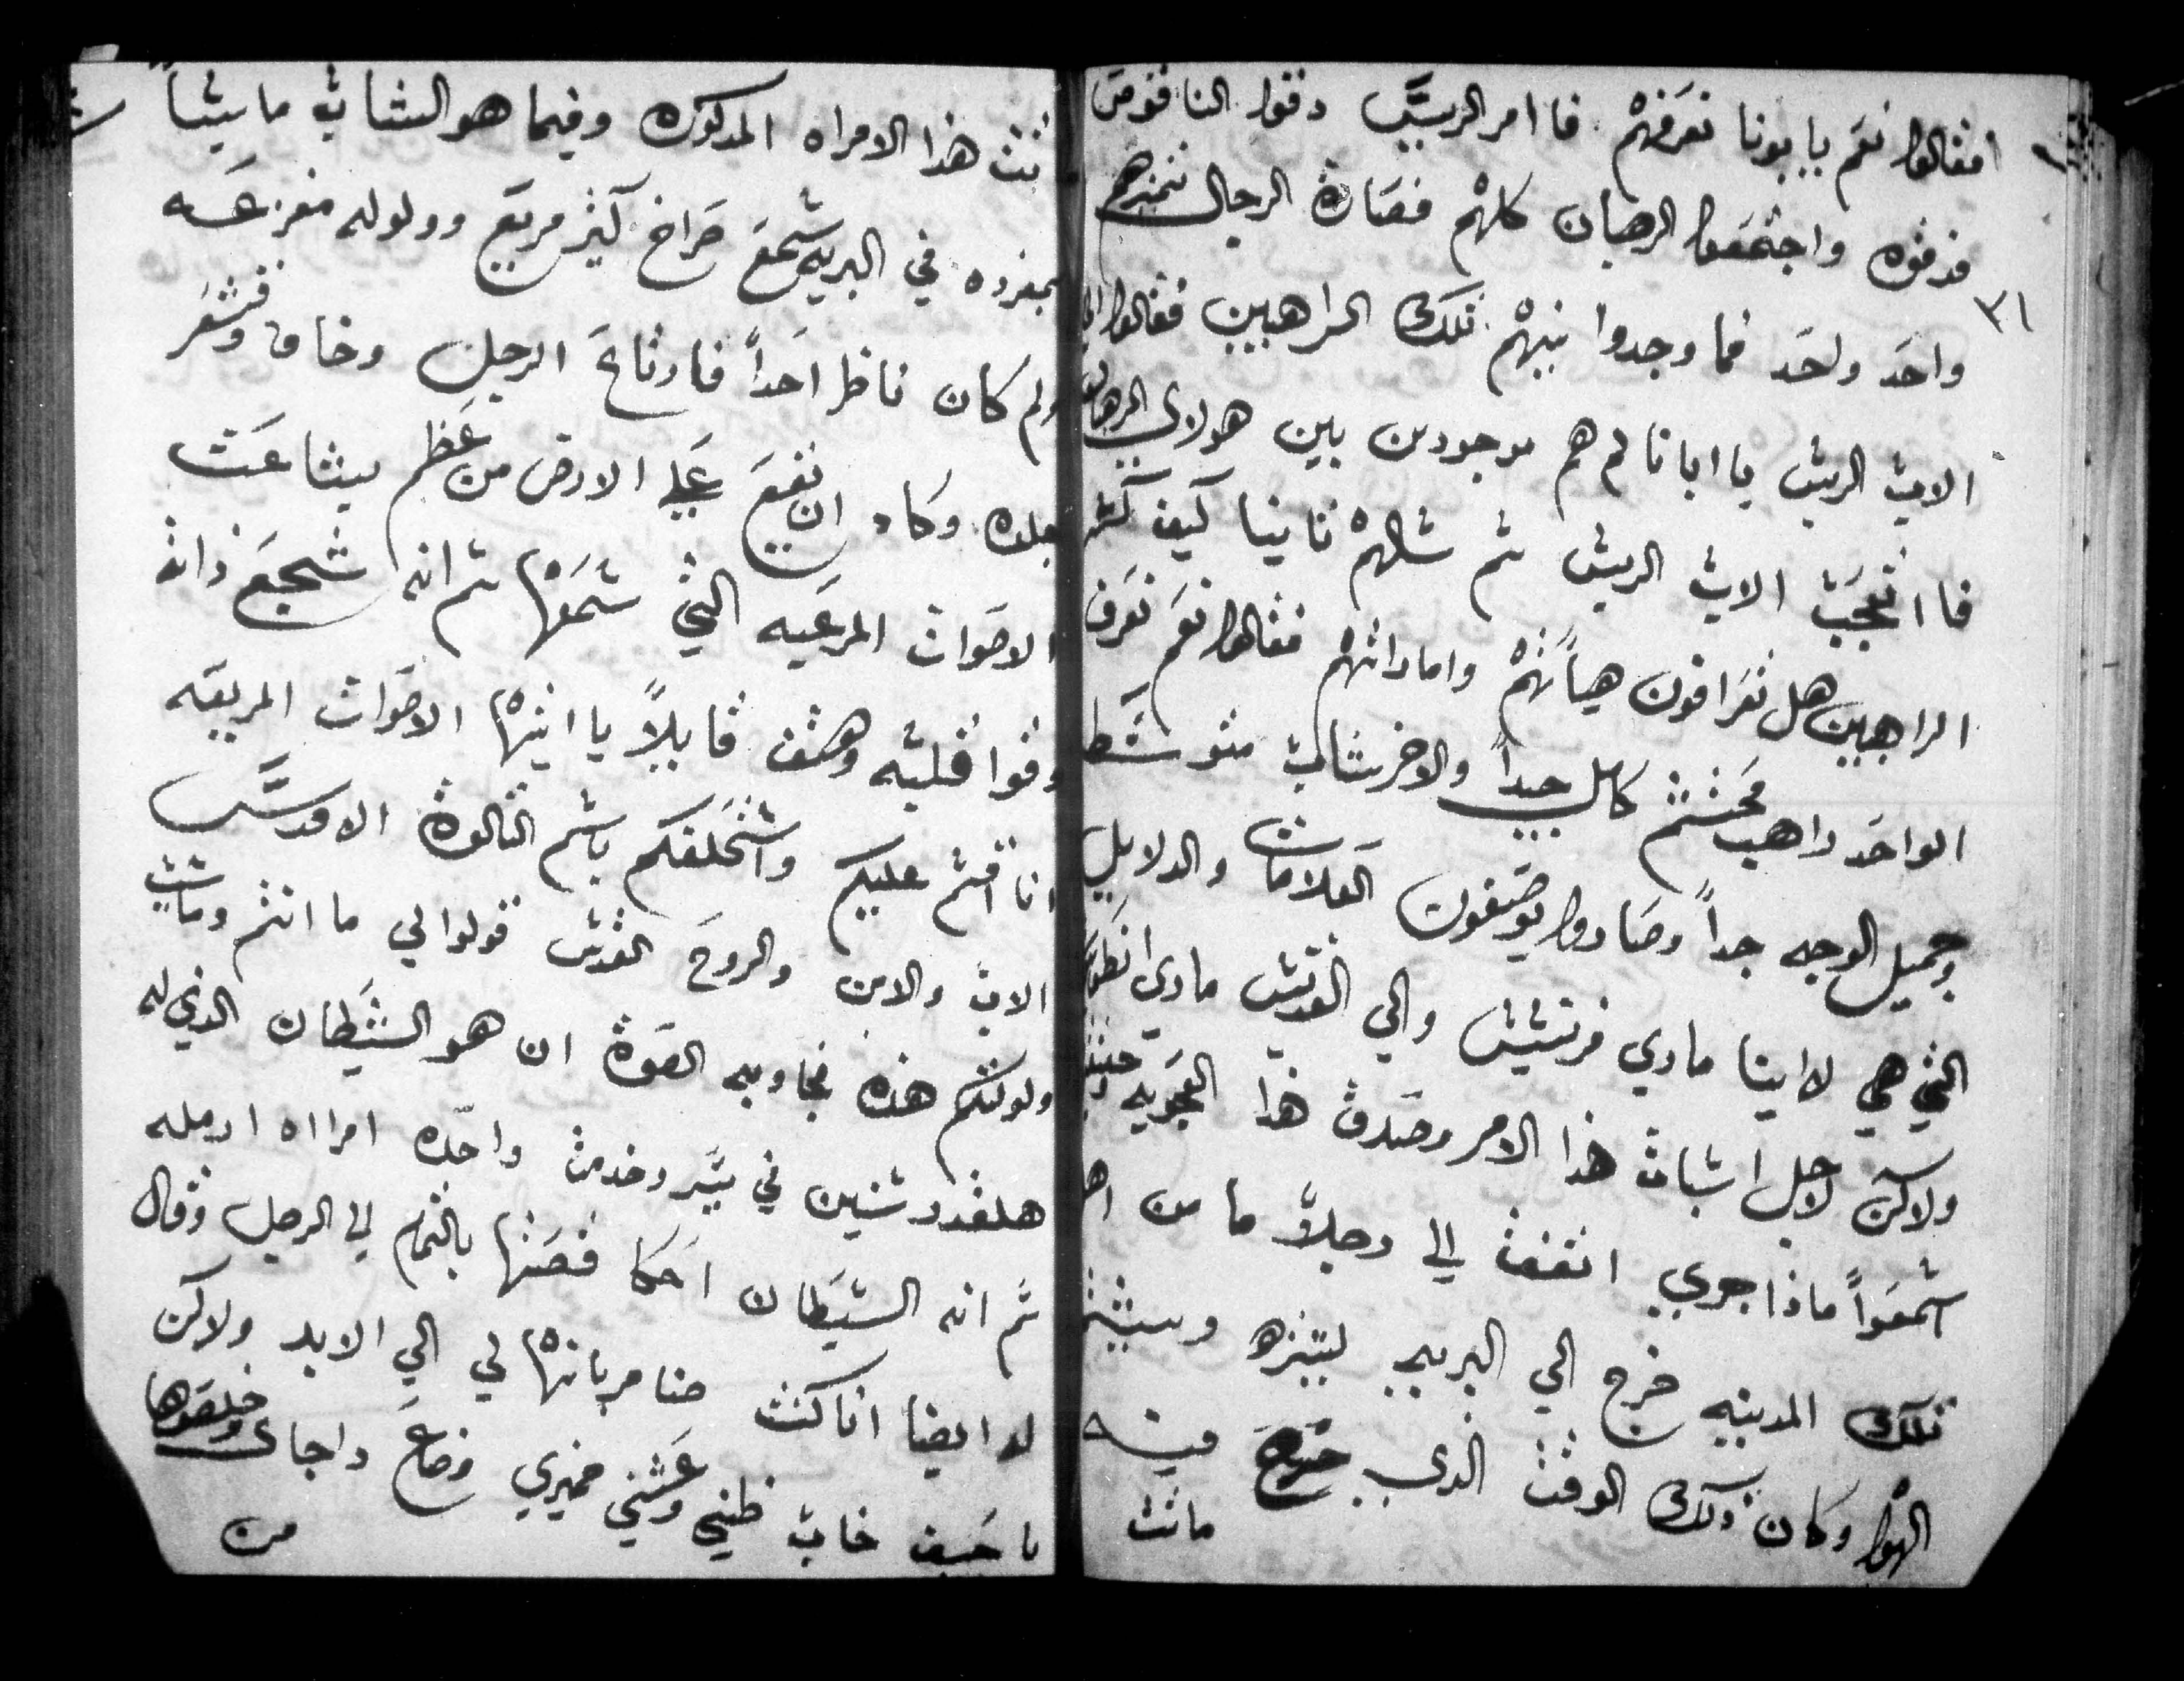 فقالوا نعم يا بونا نعرفهم فا امر الريس دقوا الناقوس
فدقوه واجتمعوا الرهبان كلهم فصارة الرجال تميزهم
٣١
واحد ولحد فما وجدوا بينهم تلك الراهبين فقالوا الي
الاب الريس يا ابانا لم هم موجودين بين هولاي الرهبان
فا اتعجب الاب الريس تم سالهم تانيا كيف
الراهبين هل تعرافون هياتهم واماراتهم فقالوا نعم نعرف
الواحد راهب محتشم كامل جداً والاخر شاب متوسط
وجميل الوجه جداً وصاروا يوصفون العلامات والدلايل
التي هي لابينا ماري فرنسيس والي القديس ماري انطون
ولاكن لاجل اتبات هذا الامر وصدق هذا العجوبه
اسمعوا ماذا جري اتفقت الي رجلاً ما من اهل
تلك المدينه خرج الي البريه ليتنزه
الهوا وكان ذلك الوقت الذي خرج فيه
ماتت
تت هذا الامراه المدكوره وفيما هو الشاب ماشياً
بمفرده في البريه سمع صراخ كتير مريع وولوله مفزعه
ولم كان ناظر احداً فارتاع الرجل وخاف وقشعر
جلده وكاد ان يقع علي الارض من عظم بشاعت
الاصوات المرعبه التي سمعها تم انه شجع ذاته
وقوا قلبه وهتف قايلاً يا ايتها الاصوات المريعه
انا اقسم عليكم واستحلفكم باسم التالوت الاقدس
الاب والابن والروح القدس قولوا لي ما انتم وما سبب
ولولتكم هذه فجاوبه الصوت ان هو الشيطان الذي له
هلقدر سنين في يسر وخدمت واحده امراه ارمله
تم انه الشيطان احكا قصتها بالتمام الي الرجل وقال
له ايضا انا كنت ضامر بانها لي الي الابد ولاكن
يا حيف خاب ظني وغشني ضميري وضاع رجاي وخلصوها
من